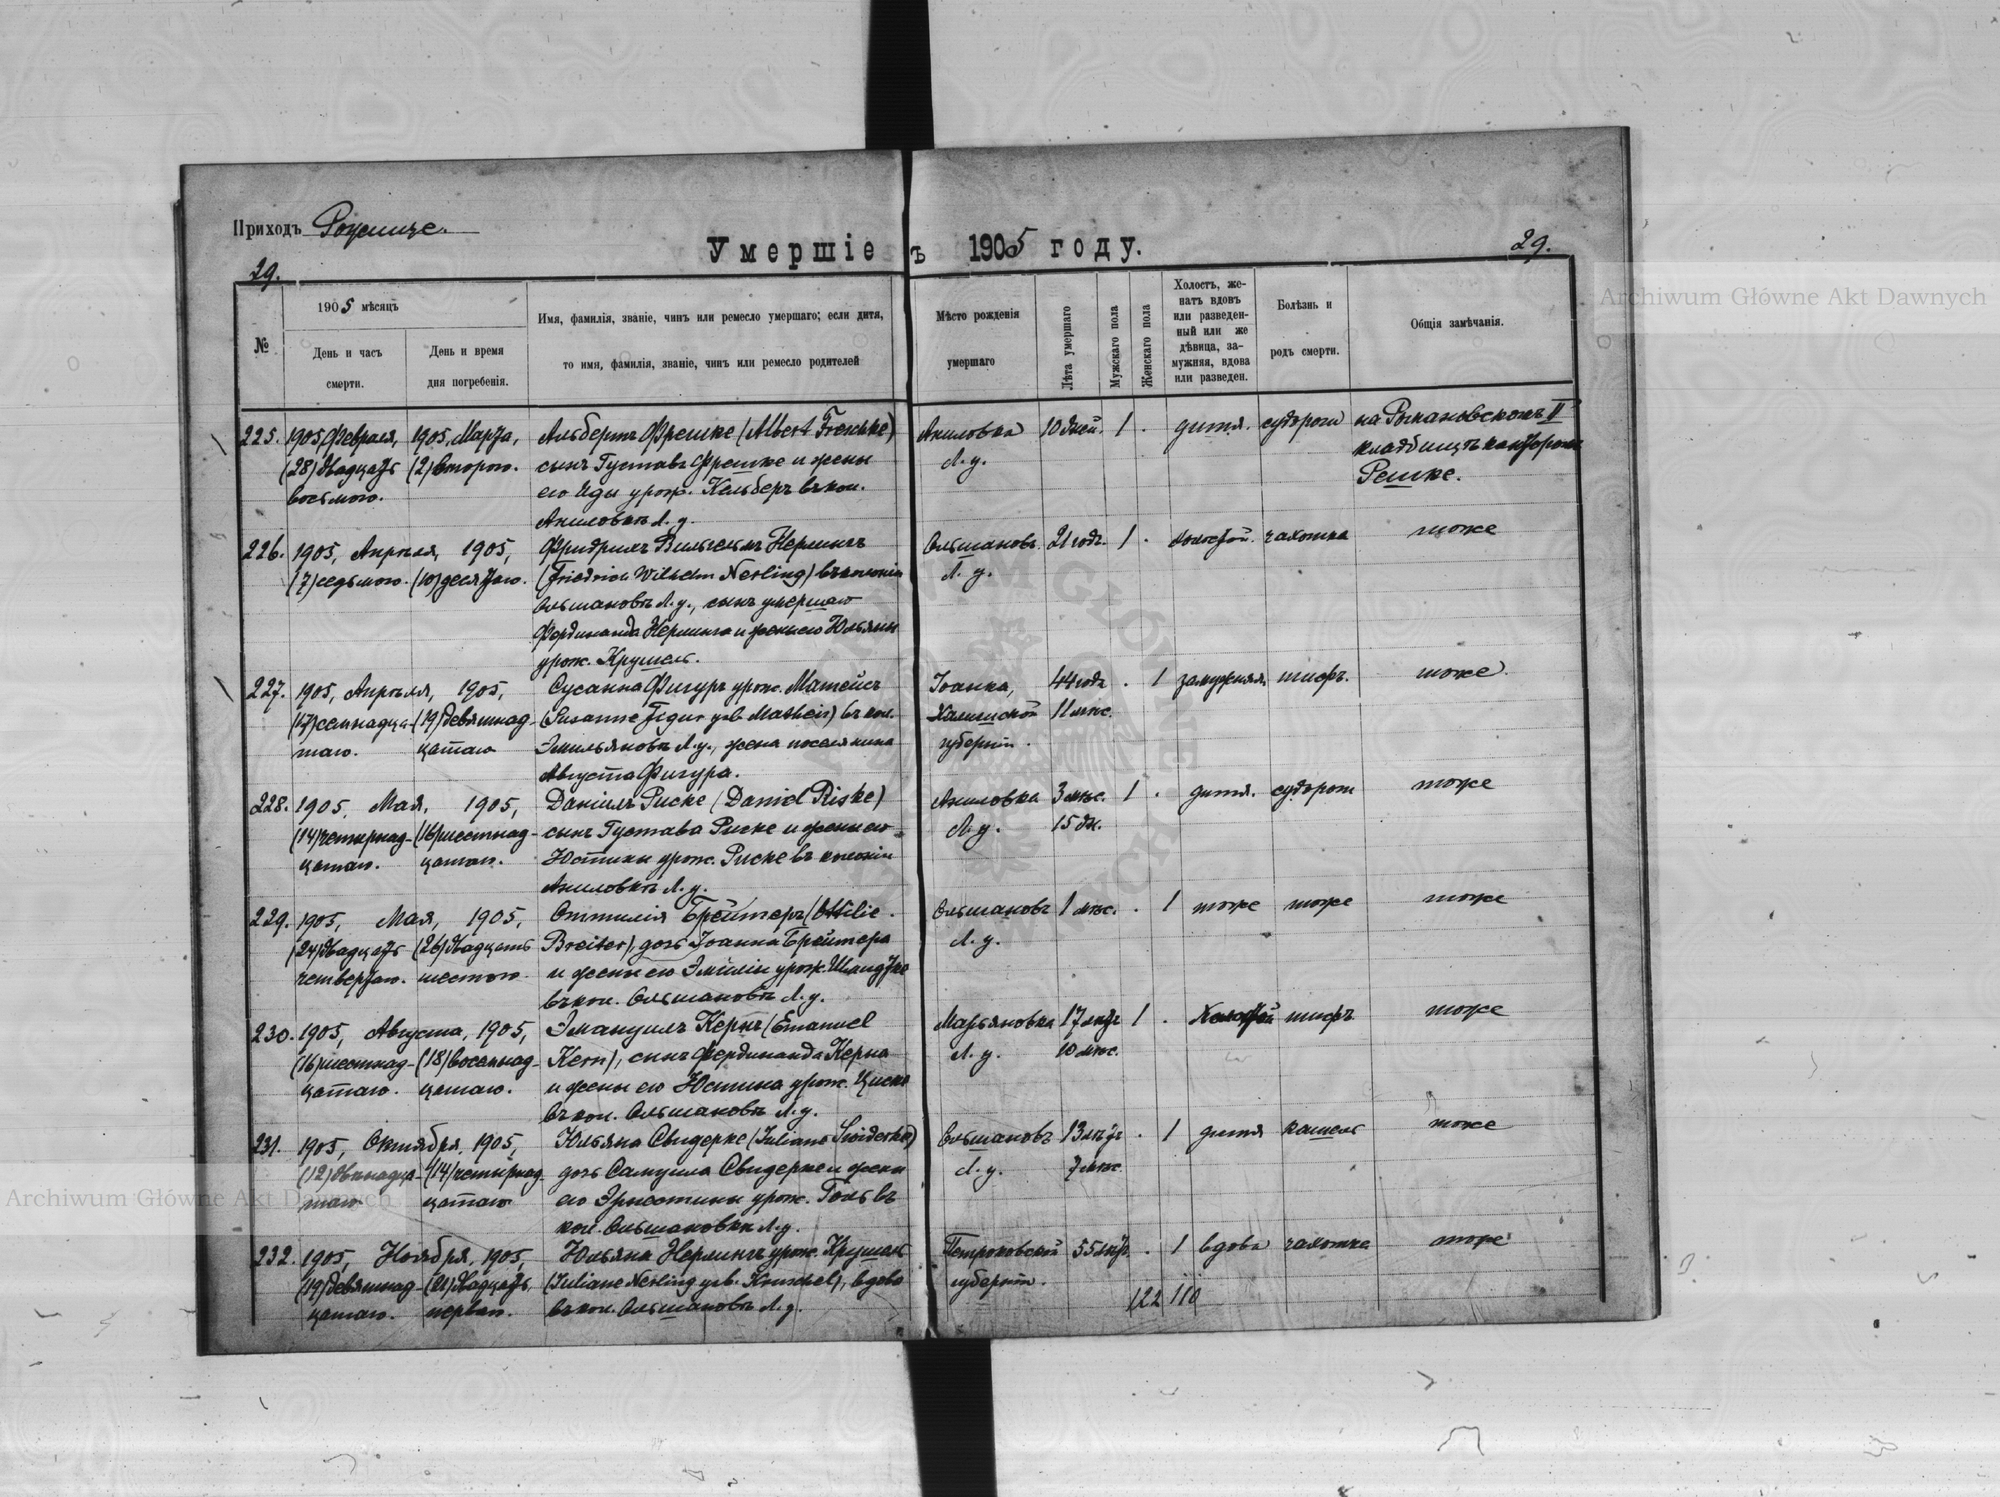 Приходъ Рожище.
Умершіе въ 1905 году.
29.
29.
№
1905 мѣсяцъ
День и часъ смерти.
День и время дня погребенія.
Имя, фамилія, званіе, чинъ или ремесло умершаго; если дитя,
то имя, фамилія, званіе, чинъ или ремесло родителей
Мѣсто рожденія
умершаго
Лѣта умершаго
Мужскаго пола
Женскаго пола
Холостъ, же-
натъ вдовъ
или разведен-
ный или же
дѣвица, за-
мужняя, вдова
или разведен.
Болѣзнь и
родъ смерти.
Общія замѣчанія.
225. 1905, Февраля, 1905, Марта, Альбертъ Фрешке (Albert Freschke) Акиловка 10 дней. 1 . дитя. судороги на Романовскомъ II
(28) двадцать (2) второго. сынъ Густава Фрешке и жены Л. у. кладбищѣ канторомъ
восьмого. его Иды урож. Кельберъ въ кол. Решке.
Акиловкѣ Л. у.
226. 1905, Апрѣля, 1905, Фридрихъ Вильгельмъ Нерлингъ Ольшановъ. 21 годъ. 1 . холостой. чахотка тоже
(7) седьмого. (10) десятаго. (Friedrich Wilhelm Nerling) въ колоніи Л. у.
Ольшановкѣ Л. у., сынъ умершаго
Фердинанда Нерлинга и жены его Юльяны
урож. Крушель.
227. 1905, Апрѣля, 1905, Сусанна Фигуръ урож. Матейсъ Іоанка, 44 года . 1 замужняя. тифъ. тоже
(17) семнадца- (19) девятнад- (Susanne Figur geb Matheis) въ кол. Калишской 11 мѣс.
таго. цатаго Эмильяновкѣ Л. у., жена поселянина губерніи.
Августа Фигура.
228. 1905, Мая, 1905, Даніилъ Риске (Daniel Riske) Акиловка 3 мѣс. 1 . дитя. судороги тоже
(14) четырнад- (16) шестнад- сынъ Густава Риске и жены его Л. у. 15 дн.
цатаго. цатаго. Юстины урож. Риске въ колоніи
Акиловкѣ Л. у.
229. 1905, Мая, 1905, Оттилія Брейтеръ (Ottilie Ольшановъ 1 мѣс. . 1 тоже тоже тоже
(24) двадцать (26) двадцать Breiter), дочь Іоанна Брейтера Л. у.
четвертаго. шестого. и жены его Эмиліи урож.
въ кол. Ольшановкѣ Л. у.
230. 1905, Августа, 1905, Эмануилъ Кернъ (Emanuel Марьяновка 17 лѣтъ 1 . Холостой тифъ тоже
(16) шестнад- (18) восемнад- Kern), сынъ Фердинанда Керна Л. у. 10 мѣс.
цатаго. цатаго. и жены его Юстина урож.
въ кол. Ольшановкѣ Л. у.
231. 1905, Октября, 1905, Юльяна Свидерке (Juliane Swiderke) Ольшановъ 13 лѣтъ . 1 дитя кашель тоже
(12) двѣнадца- (14) четырнад- дочь Самуила Свидерке и жены Л. у. 7 мѣс.
таго цатаго его Эрнестины урож. Гольъ въ
кол. Ольшановкѣ Л. у.
232. 1905, Ноября, 1905, Юльяна Нерлингъ урож. Крушель Петроковской 55 лѣтъ . 1 вдова чахотка тоже
(19) девятнад- (21) двадцать (Juliane Nerling geb. Kruschel), вдова губерніи.
цатаго. перваго. въ кол. Ольшановкѣ Л. у. 122 110
Archiwum Główne Akt Dawnych
Archiwum Główne Akt Dawnych